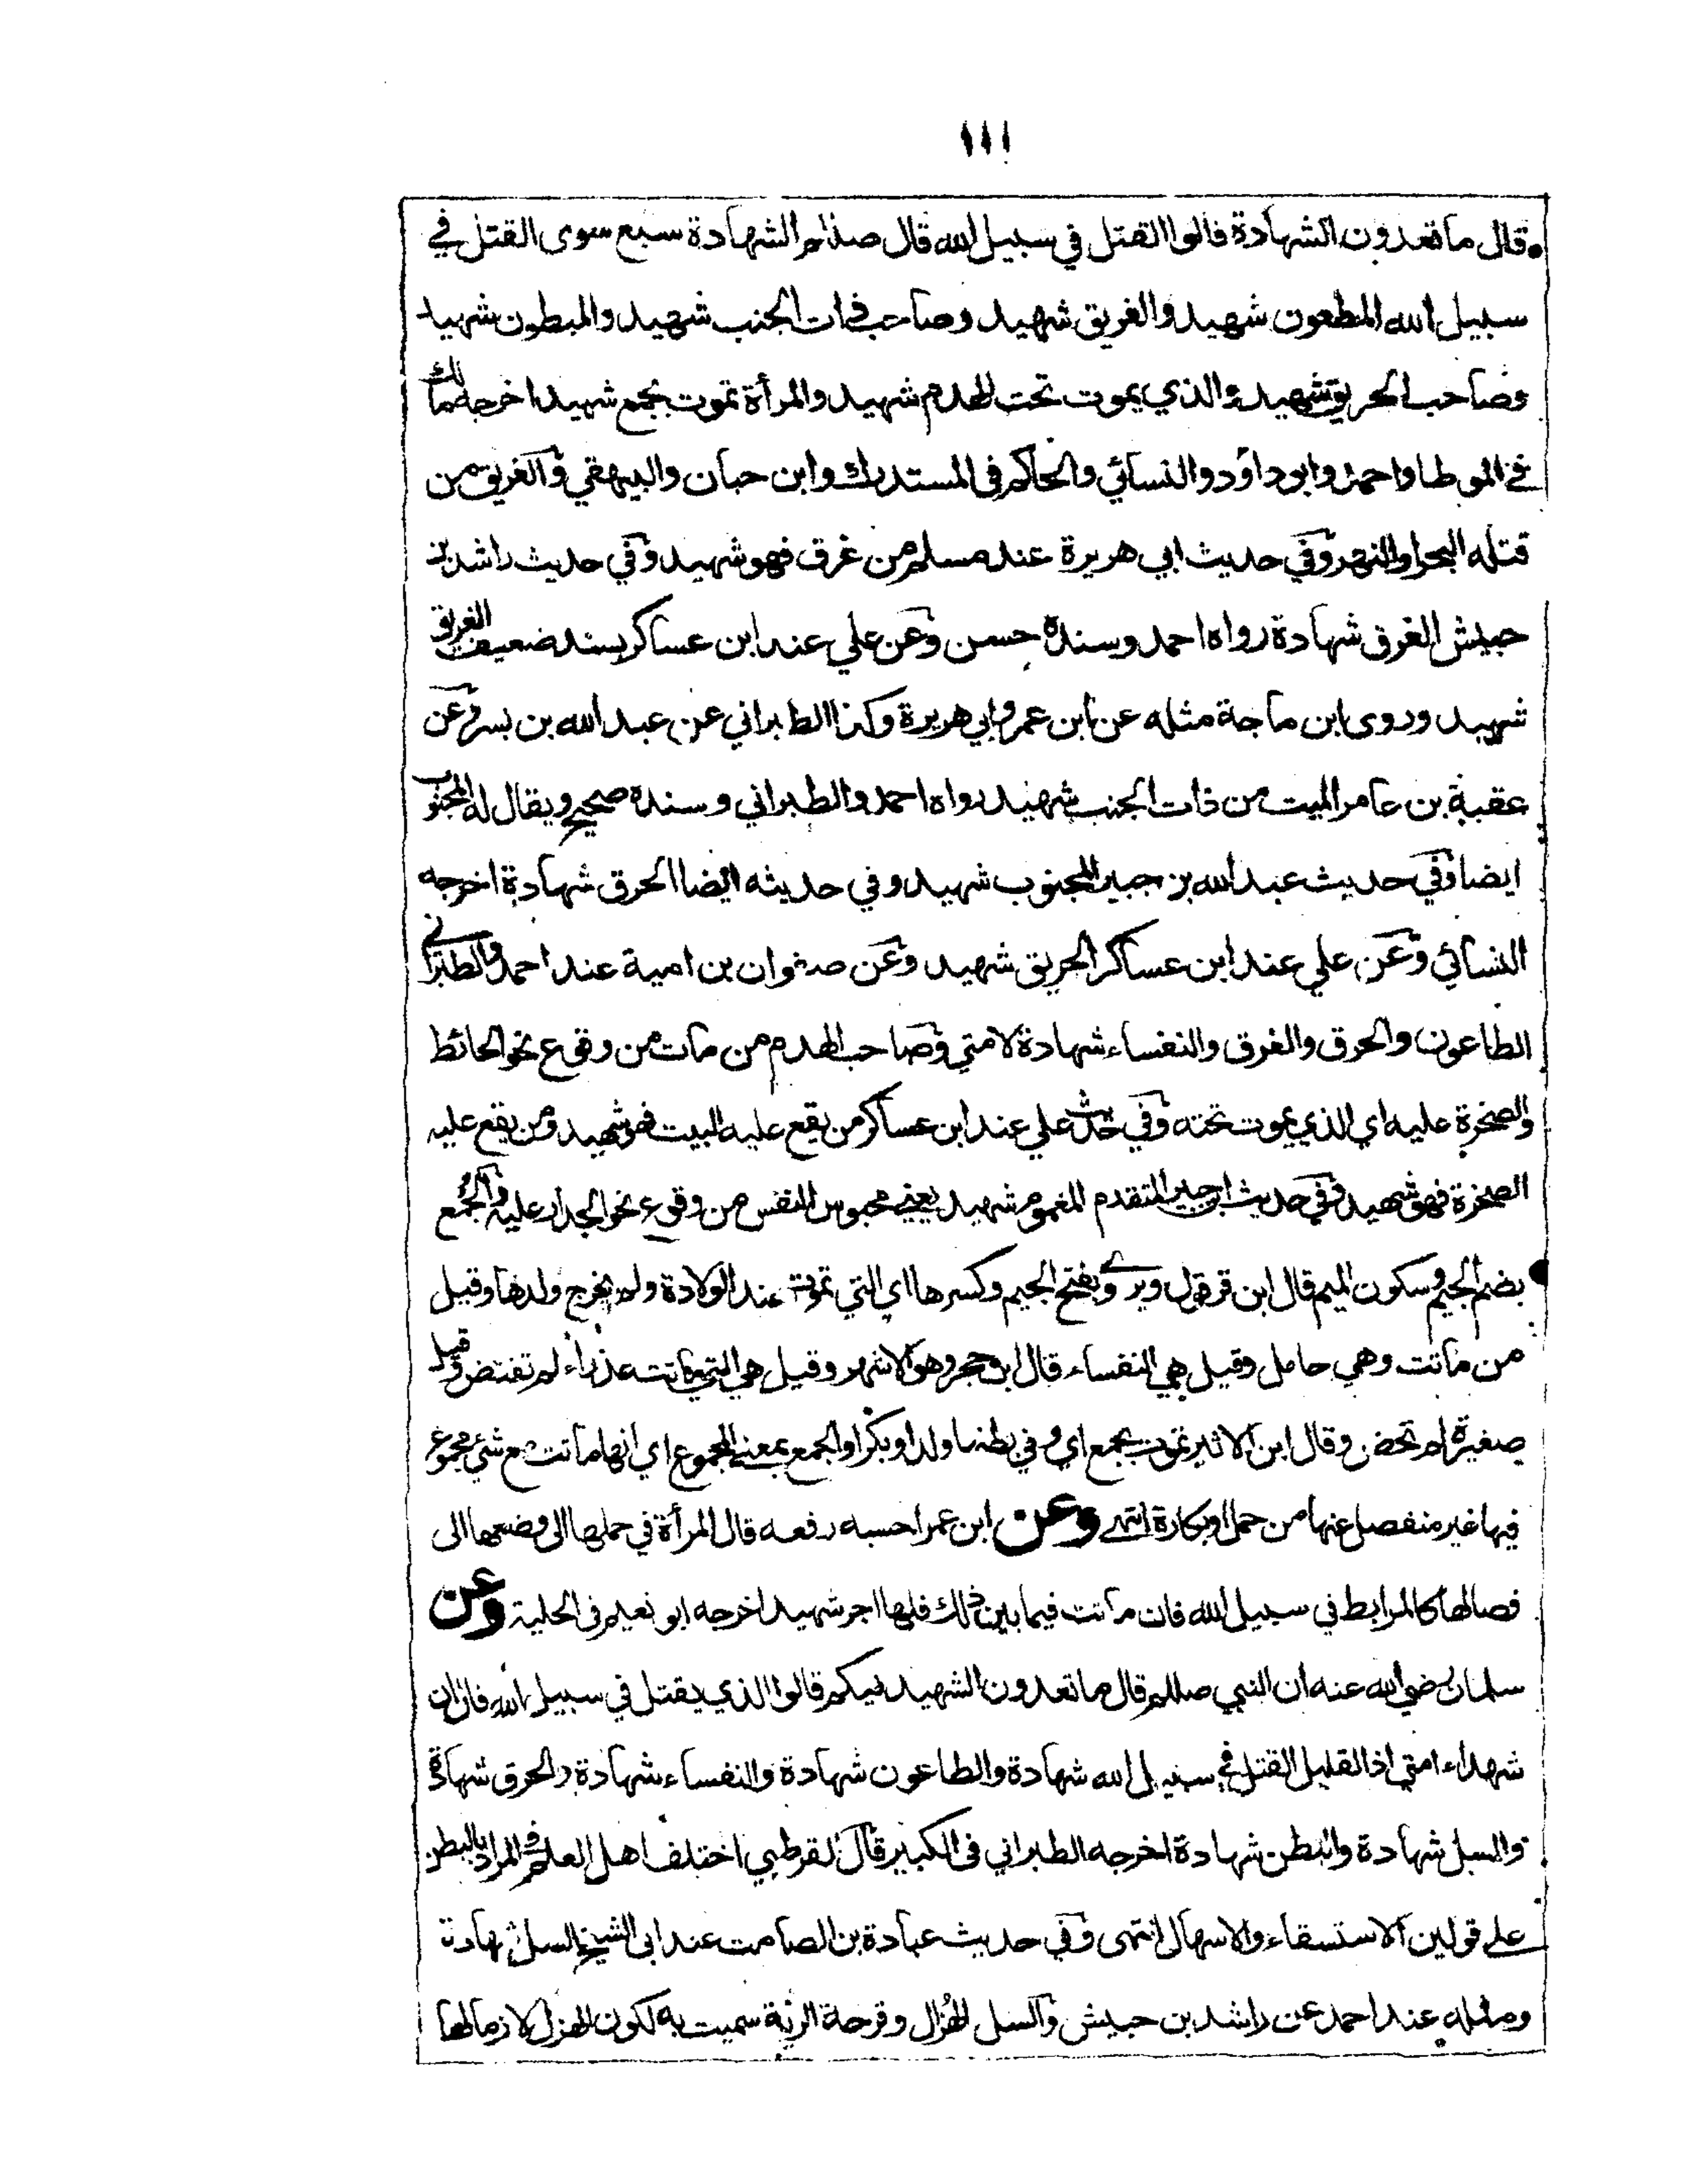 ١١١
قال ما تعدون الشهادة قالوا القتل في سبيل الله قال صللم الشهادة سبع سوى القتل في
سبيل الله المطعون شهيد والغريق شهيد وصاحب ذات الجنب شهيد والمبطون شهيد
وصاحب الحريق شهيد والذي يموت تحت الهدم شهيد والمرأة تموت بجمع شهيد اخرجه مالك
في الموطا واحمد وابو داؤد والنسائي والحاكم في المستدرك وابن حبان والبيهقي والغريق من
قتله البحر او النهر وفي حديث ابي هريرة عند مسلم من غرق فهو شهيد وفي حديث راشد بن
حبيش الغرق شهادة رواه احمد وسنده حسن وعن علي عند ابن عساكر بسند ضعيف الغريق
شهيد وروى ابن ماجة مثله عن ابن عمر وابي هريرة وكذا الطبراني عن عبد الله بن بسر وعن
عقبة بن عامر الميت من ذات الجنب شهيد رواه احمد والطبراني وسنده صحيح ويقال له المجنوب
ايضا وفي حديث عبد الله بن جبير المجنوب شهيد وفي حديثه ايضا الحرق شهادة اخرجه
النسائي وعن علي عند ابن عساكر الحريق شهيد وعن صفوان بن امية عند احمد والطبراني
الطاعون والحرق والغرق والنفساء شهادة لامتي وصاحب الهدم من مات من وقوع نحو الحائط
والصخرة عليه اي الذي يموت تحته وفي حديث علي عند ابن عساكر من يقع عليه البيت فهو شهيد ومن يقع عليه
الصخرة فهو شهيد وفي حديث ابن جبير المتقدم المغموم شهيد يعني محبوس النفس من وقوع نحو الجدار عليه والجمع
بضم الجيم وسكون الميم قال ابن قرقول ويروى بفتح الجيم وكسرها اي التي تموت عند الولادة ولم يخرج ولدها وقيل
من ماتت وهي حامل وقيل هي النفساء قال ابن حجر وهو الاشهر وقيل هي التي ماتت عذراء لم تفتض وقيل
صغيرة لم تحض وقال ابن الاثير تموت بجمع اي وفي بطنها ولد او بكرا والجمع بمعنى المجموع اي انها ماتت مع شئ مجموع
فيها غير منفصل عنها من حمل او بكارة انتهى وعن ابن عمر احسبه رفعه قال المرأة في حملها الى وضعها الى
فصالها كالمرابط في سبيل الله فان ماتت فيما بين ذلك فلها اجر شهيد اخرجه ابو نعيم في الحلية وعن
سلمان رضي الله عنه ان النبي صللم قال ما تعدون الشهيد فيكم قالوا الذي يقتل في سبيل الله قال ان
شهداء امتي اذا لقليل القتل في سبيل الله شهادة والطاعون شهادة والنفساء شهادة والحرق شهادة
والسل شهادة والبطن شهادة اخرجه الطبراني في الكبير قال القرطبي اختلف اهل العلم في المراد بالبطن
على قولين الاستسقاء والاسهال انتهى وفي حديث عبادة بن الصامت عند ابي الشيخ السل شهادة
ومثله عند احمد عن راشد بن حبيش والسل الهزال وقرحة الرئة سميت به لكون الهزال لازما لها